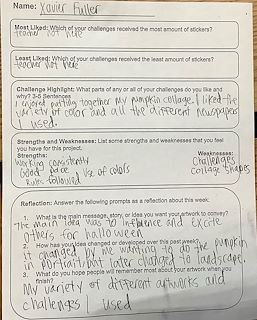 Name: Xavier Fuller
Most Liked: Which of your challenges received the most amount of stickers?
teacher not here
Least Liked: Which of your challenges received the least amount of stickers?
teacher not here
Challenge Highlight: What parts of any or all of your challenges do you like and why? 3-5 Sentences
I enjoyed putting together my pumpkin collage. I liked the
variety of color and all the different newspapers
I used.
Strengths and Weaknesses: List some strengths and weaknesses that you feel you have for this project.
Strengths: Weaknesses:
Working consistently Challenges
Good pace use of colors Collage shapes
Rules followed
Reflection: Answer the following prompts as a reflection about this week:
1. What is the main message, story, or idea you want your artwork to convey?
The main idea was to influence and excite
others for halloween
2. How has your idea changed or developed over this past week?
it changed by me wanting to do the pumpkin
in portrait but later changed to landscape.
3. What do you hope people will remember most about your artwork when you finish?
My variety of different artworks and
challenges I used